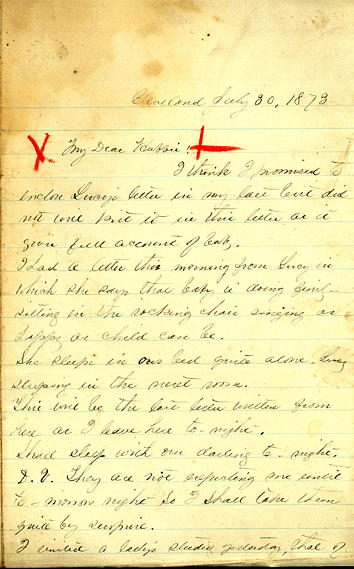 Cleveland July 30, 1873
X My Dear Robbie!
I think I promised to
enclose Lucy's letter in my last but did
not will put it in this letter as it
gives full account of baby.
I had a letter this morning from Lucy in
which she says that baby is doing finely
sitting in the rocking chair singing as
happy as child can be.
She sleeps in our bed quite alone Lucy
sleeping in the next room.
This will be the last letter written from
here as I leave here to-night.
Shall sleep with our darling to-night.
D.V. They are not expecting me until
to-morrow night so I shall take them
quite by surprise.
I visited a lady's studio yesterday, that of